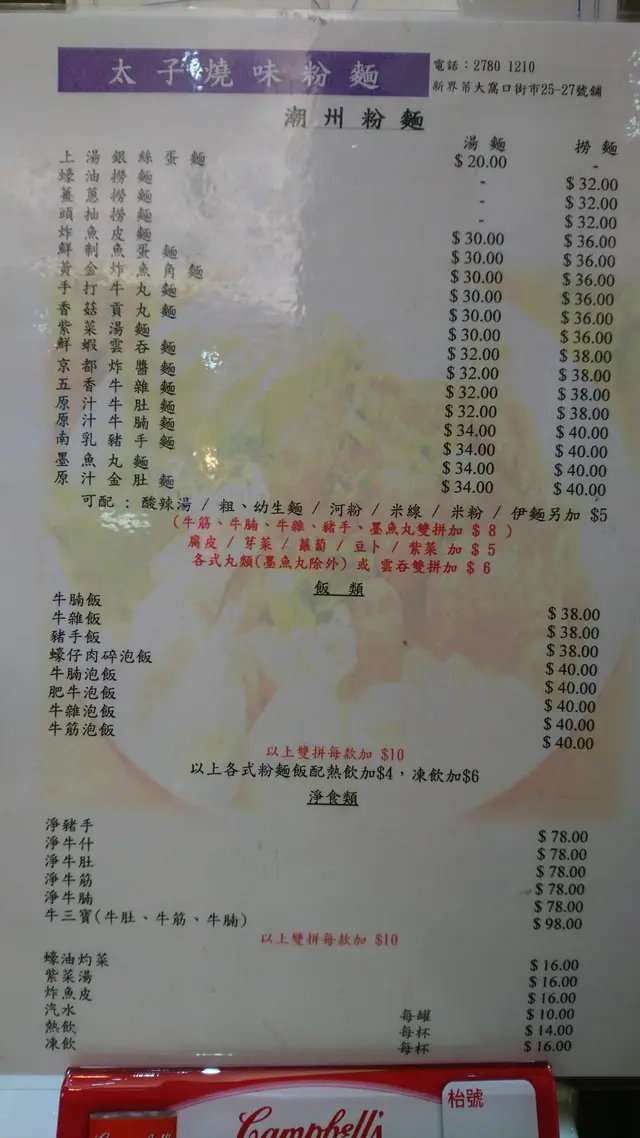 太子燒味粉麵
電話：2780 1210
新界 大窩口街市25-27號舖
潮州粉麵
湯麵 撈麵
上湯銀絲蛋麵 $20.00 -
蠔油撈麵 - $32.00
薑蔥撈麵 - $32.00
頭抽撈麵 - $32.00
炸魚皮麵 $30.00 $36.00
鮮制魚蛋麵 $30.00 $36.00
黃金炸魚角麵 $30.00 $36.00
手打牛丸麵 $30.00 $36.00
香菇貢丸麵 $30.00 $36.00
紫菜湯麵 $30.00 $36.00
鮮蝦雲吞麵 $32.00 $38.00
京都炸醬麵 $32.00 $38.00
五香牛雜麵 $32.00 $38.00
原汁牛肚麵 $32.00 $38.00
原汁牛腩麵 $34.00 $40.00
南乳豬手麵 $34.00 $40.00
墨魚丸麵 $34.00 $40.00
原汁金肚麵 $34.00 $40.00
可配：酸辣湯 / 粗、幼生麵 / 河粉 / 米線 / 米粉 / 伊麵另加 $5
(牛筋、牛腩、牛雜、豬手、墨魚丸雙拼加 $8 )
腐皮 / 芽菜 / 蘿蔔 / 豆卜 / 紫菜 加 $5
各式丸類(墨魚丸除外) 或 雲吞雙拼加 $6
飯 類
牛腩飯 $38.00
牛雜飯 $38.00
豬手飯 $38.00
蠔仔肉碎泡飯 $40.00
牛腩泡飯 $40.00
肥牛泡飯 $40.00
牛雜泡飯 $40.00
牛筋泡飯 $40.00
以上雙拼每款加 $10
以上各式粉麵飯配熱飲加$4，凍飲加$6
淨食類
淨豬手 $78.00
淨牛什 $78.00
淨牛肚 $78.00
淨牛筋 $78.00
淨牛腩 $78.00
牛三寶(牛肚、牛筋、牛腩) $98.00
以上雙拼每款加 $10
蠔油灼菜 $16.00
紫菜湯 $16.00
炸魚皮 $16.00
汽水 每罐 $10.00
熱飲 每杯 $14.00
凍飲 每杯 $16.00
枱號
Campbell's